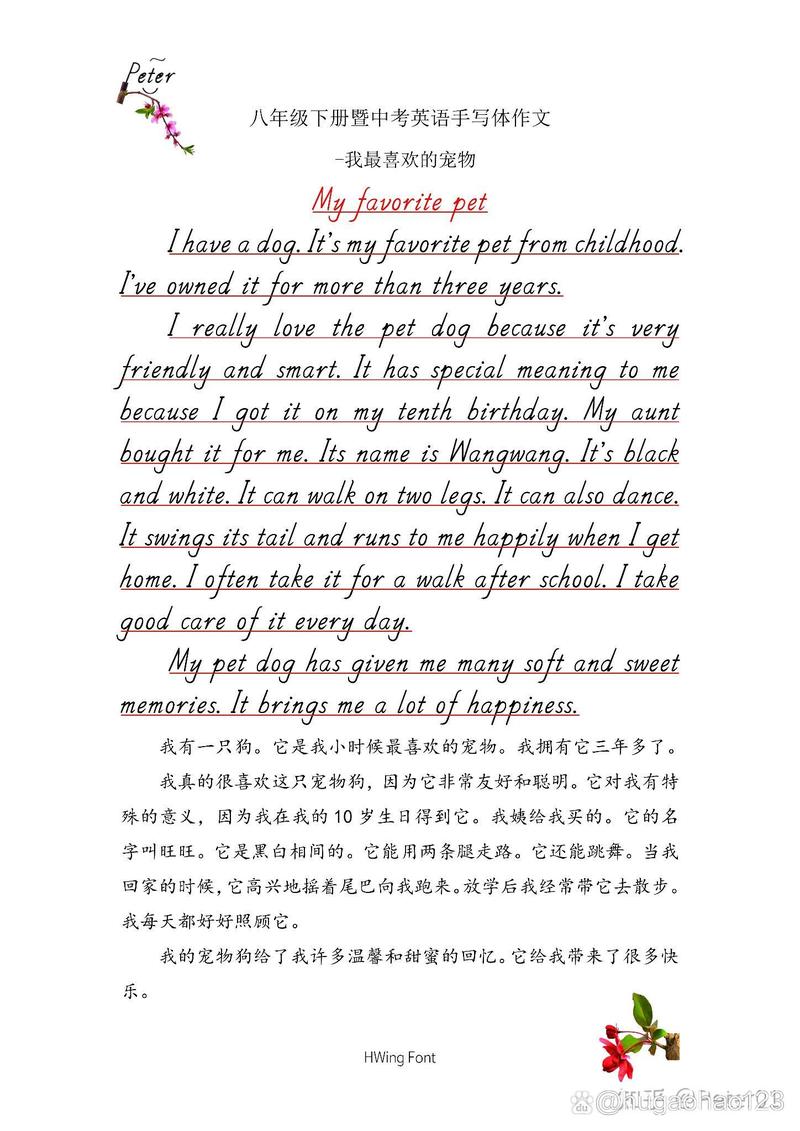 Peter
八年级下册暨中考英语手写体作文
-我最喜欢的宠物
My favorite pet
I have a dog. It's my favorite pet from childhood.
I've owned it for more than three years.
I really love the pet dog because it's very
friendly and smart. It has special meaning to me
because I got it on my tenth birthday. My aunt
bought it for me. Its name is Wangwang. It's black
and white. It can walk on two legs. It can also dance.
It swings its tail and runs to me happily when I get
home. I often take it for a walk after school. I take
good care of it every day.
My pet dog has given me many soft and sweet
memories. It brings me a lot of happiness.
我有一只狗。它是我小时候最喜欢的宠物。我拥有它三年多了。
我真的很喜欢这只宠物狗，因为它非常友好和聪明。它对我有特
殊的意义，因为我在我的 10 岁生日得到它。我姨给我买的。它的名
字叫旺旺。它是黑白相间的。它能用两条腿走路。它还能跳舞。当我
回家的时候，它高兴地摇着尾巴向我跑来。放学后我经常带它去散步。
我每天都好好照顾它。
我的宠物狗给了我许多温馨和甜蜜的回忆。它给我带来了很多快
乐。
HWing Font